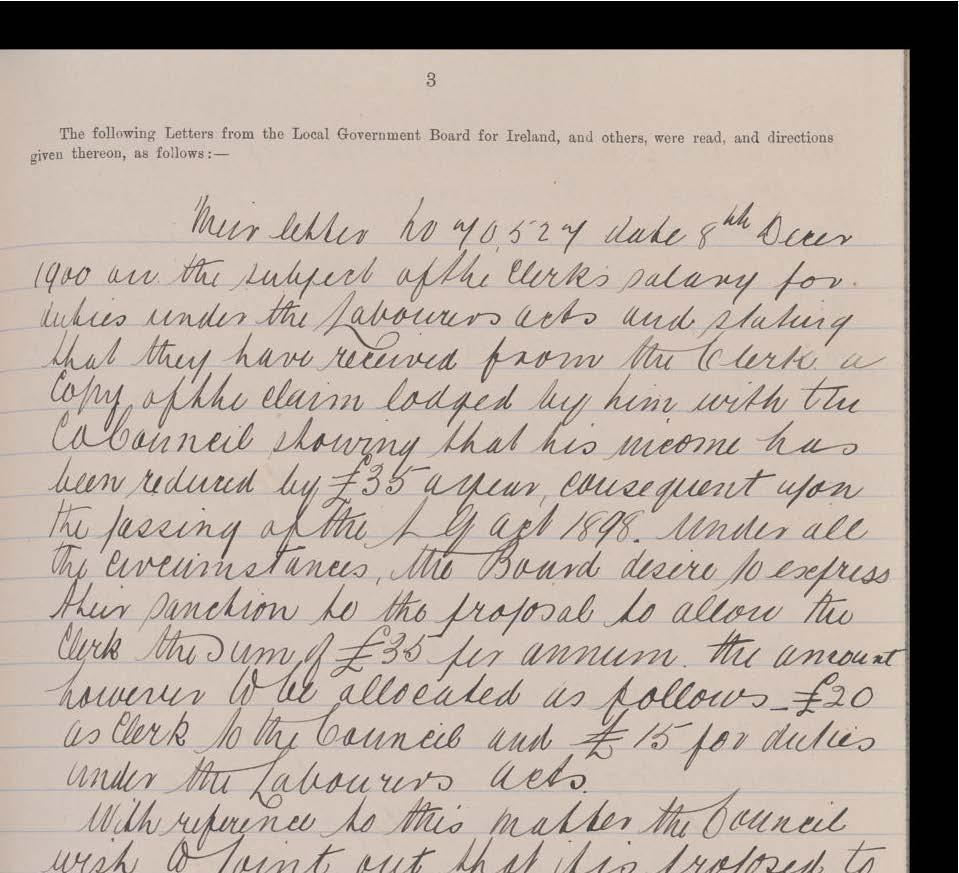 3
The following Letters from the Local Government Board for Ireland, and others, were read, and directions
given thereon, as follows:—
Their letter No 70,527 date 8th Decer
1900 on the subject of the Clerk's salary for
duties under the Labourers acts and stating
that they have received from the Clerk a
Copy of the claim lodged by him with the
Co Council showing that his income has
been reduced by £35 a year, consequent upon
the passing of the L G Act 1898. Under all
the circumstances, the Board desire to express
their sanction to the proposal to allow the
Clerk the Sum of £35 per annum. the amount
however to be allocated as follows - £20
as Clerk to the Council and £15 for duties
under the Labourers acts.
With reference to this matter the Council
wish to point out that it is proposed to